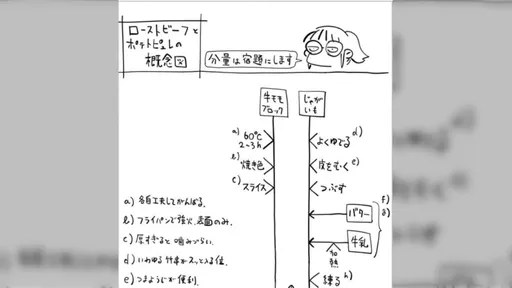 ローストビーフと
ポテトピュレの
概念図
分量は宿題にします
牛モモ
ブロック
じゃが
いも
a) 60℃
2~3h
b) 焼き色
c) スライス
よくゆでる d)
皮をむく e)
つぶす
バター
f)
g)
牛乳
練る h)
a) 各自工夫してがんばる.
b) フライパンで強火.表面のみ.
c) 厚すぎると噛みづらい.
d) いわゆる竹串がスッと入る位.
e) つまようじが便利.